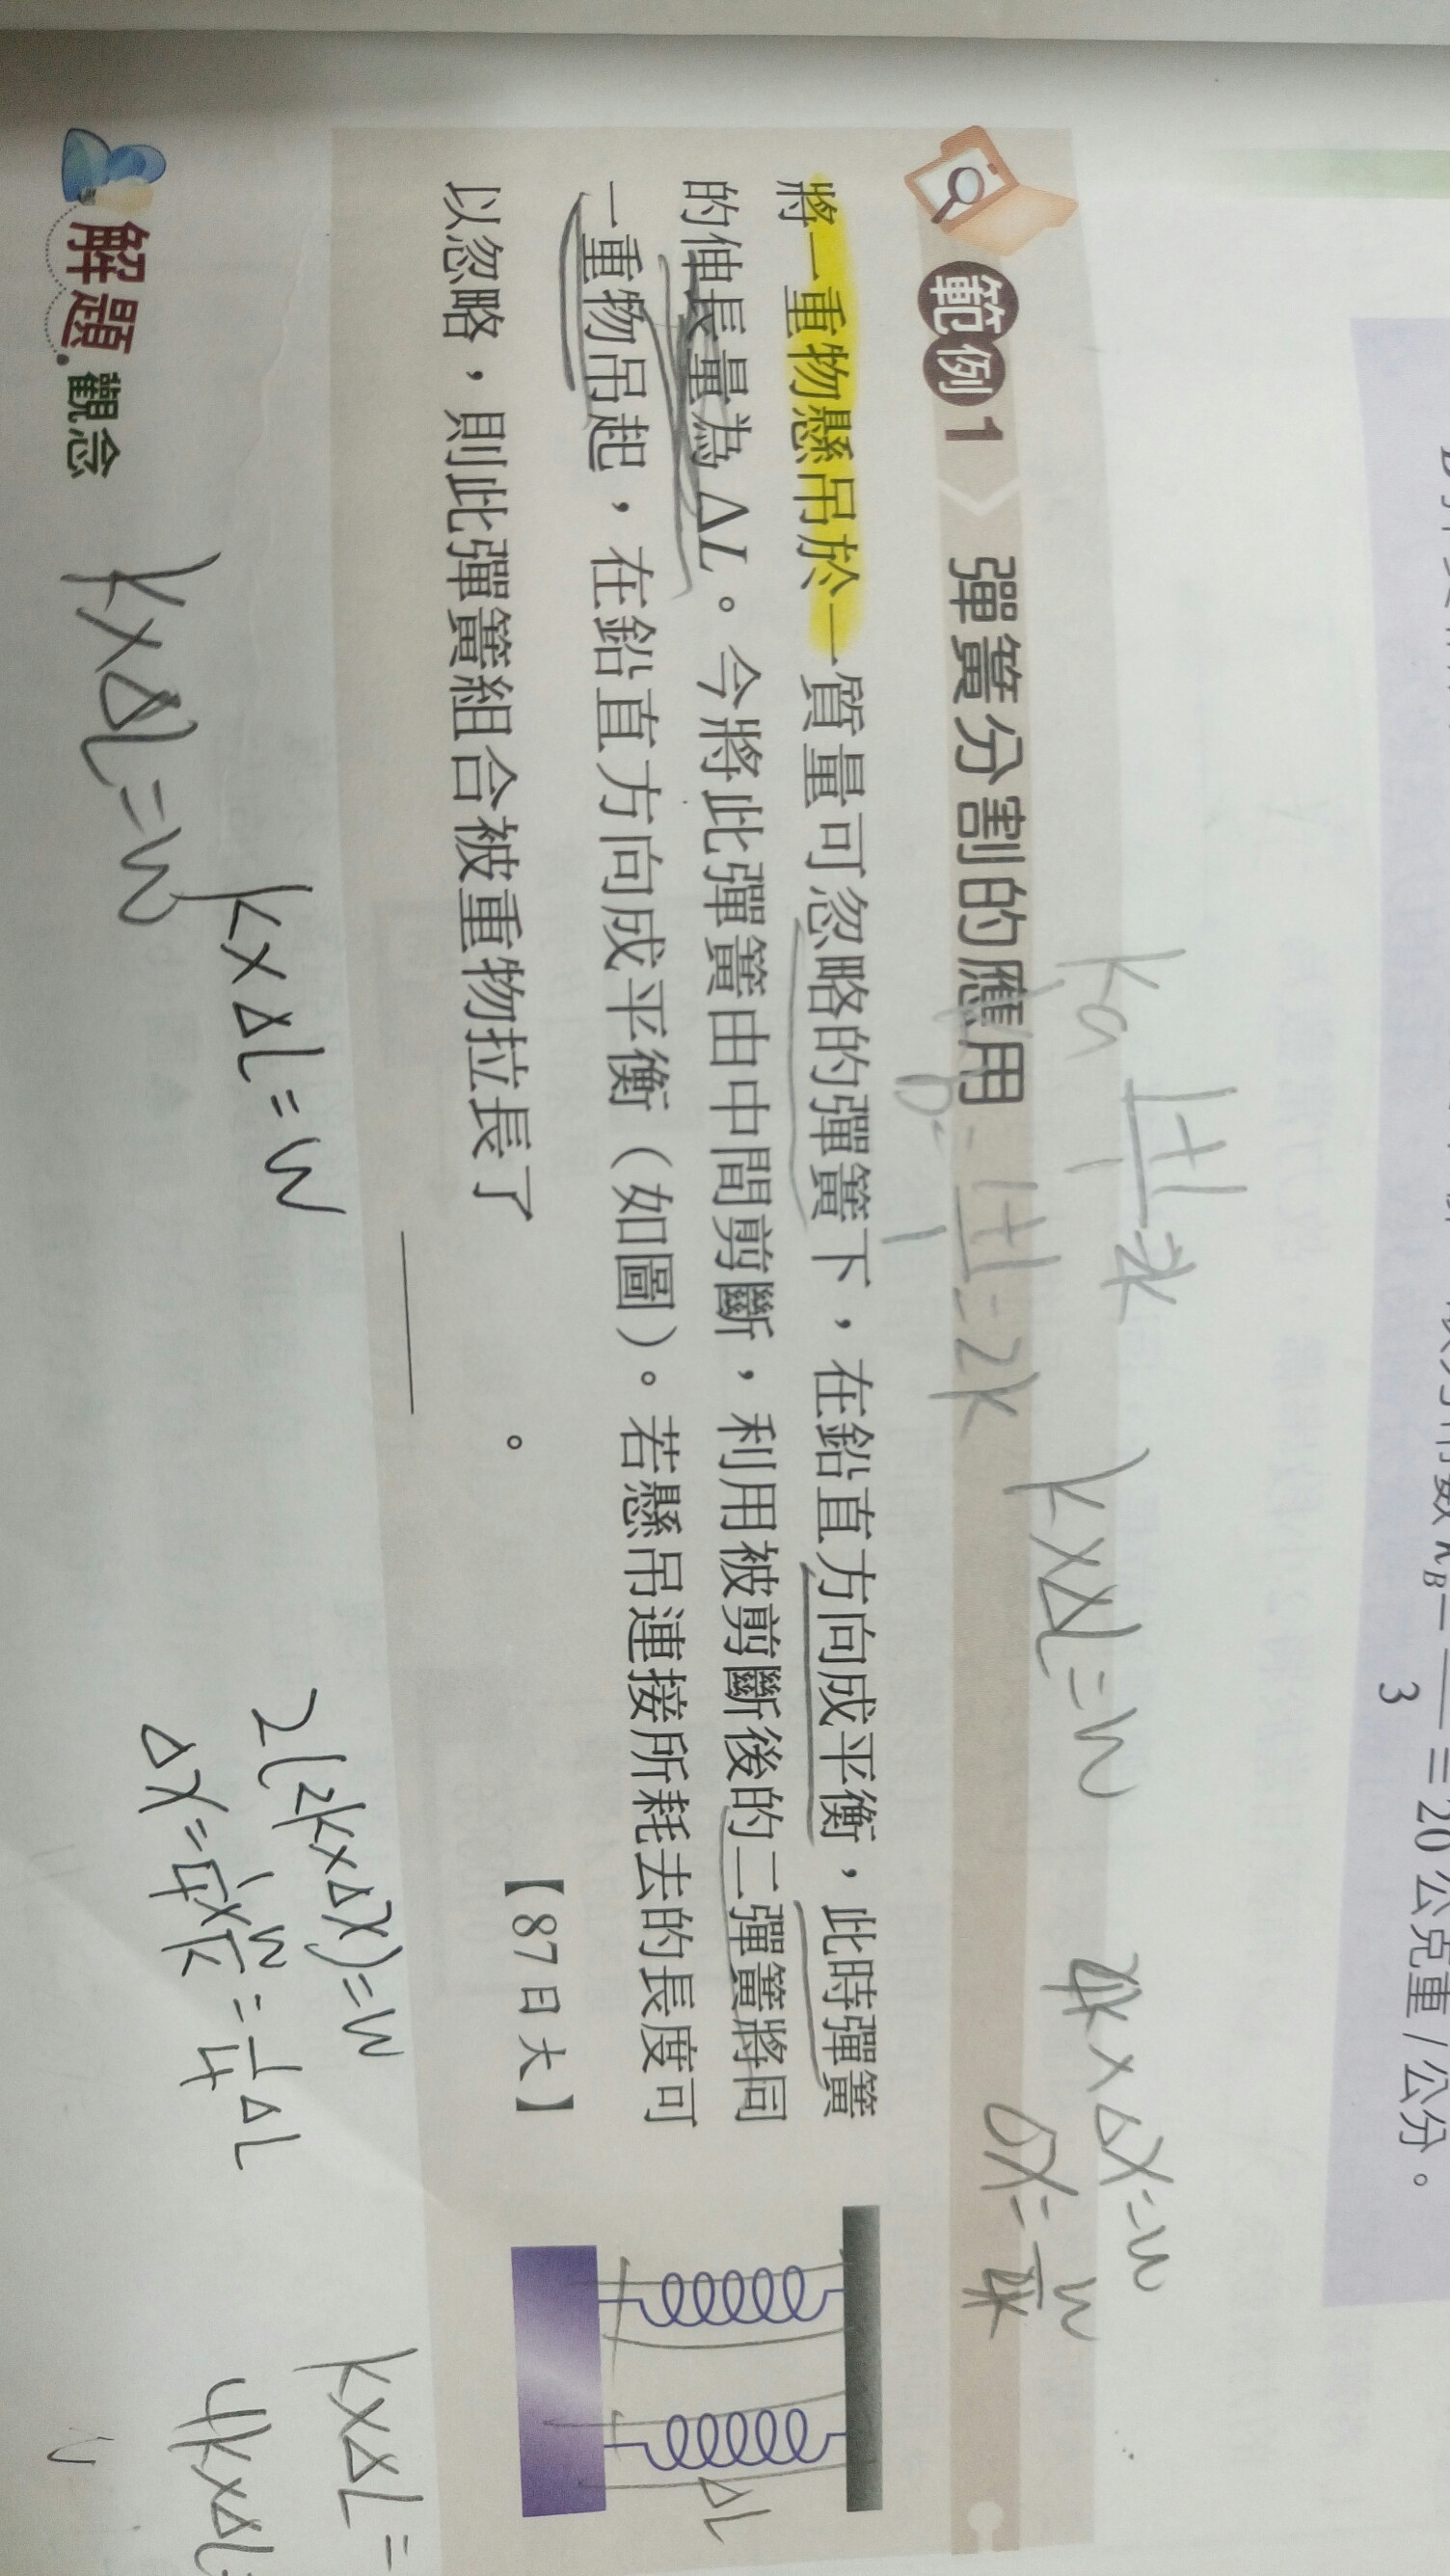 3
≡ 20 公克重 / 公分。
範例1 彈簧分割的應用
將一重物懸吊於一質量可忽略的彈簧下，在鉛直方向成平衡，此時彈簧
的伸長量為 ΔL。今將此彈簧由中間剪斷，利用被剪斷後的二彈簧將同
一重物吊起，在鉛直方向成平衡（如圖）。若懸吊連接所耗去的長度可
以忽略，則此彈簧組合被重物拉長了＿＿＿＿。
【87日大】
解題觀念
k×ΔL=W
1+1
1
=2k
4k×Δx=W
Δx=W/4k
ΔL
k×ΔL=W
k×ΔL=W
2(2k×Δx)=W
Δx=1/4×W/k=1/4ΔL
k×ΔL=
4k×ΔL